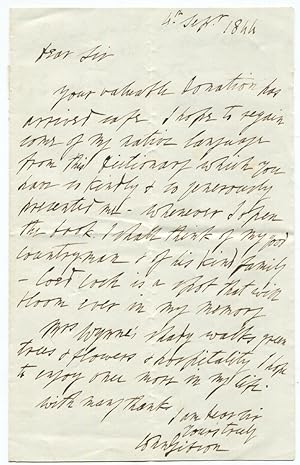 4th Sept. 1844
Dear Sir
Your valuable Donation has
arrived safe I hope to regain
some of my native language
from this Dictionary which you
have so kindly & so generously
presented me - whenever I open
the book I shall think of my good
countryman & of his kind family
- Coed Coch is a spot that will
bloom ever in my memory
Mrs Wynne's shady walks, green
trees & flowers & hospitality I hope
to enjoy once more in my life.
with many thanks
I am Dear Sir
Yours truly
John Gibson